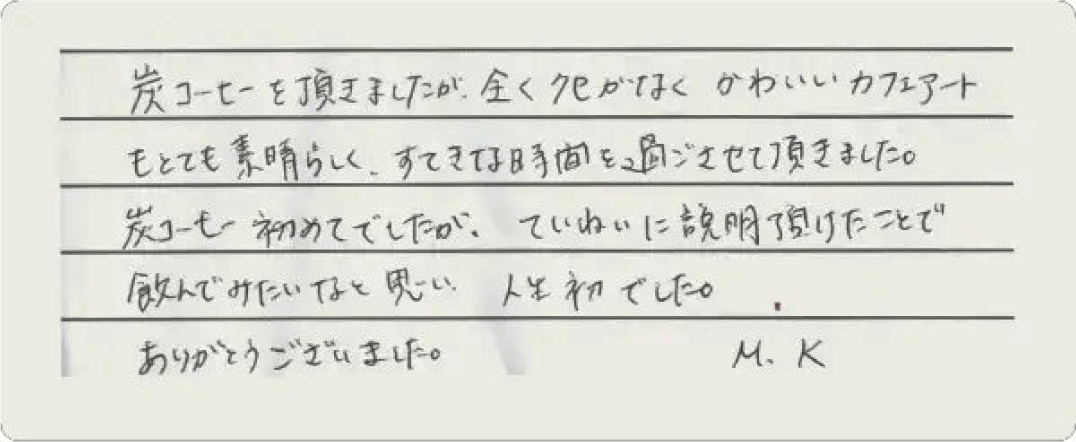 炭コーヒーを頂きましたが、全くクセがなく かわいいカフェアート
もとても素晴らしく、すてきな時間を過ごさせて頂きました。
炭コーヒー初めてでしたが、ていねいに説明頂けたことで
飲んでみたいなと思い、人生初でした。
ありがとうございました。 M.K